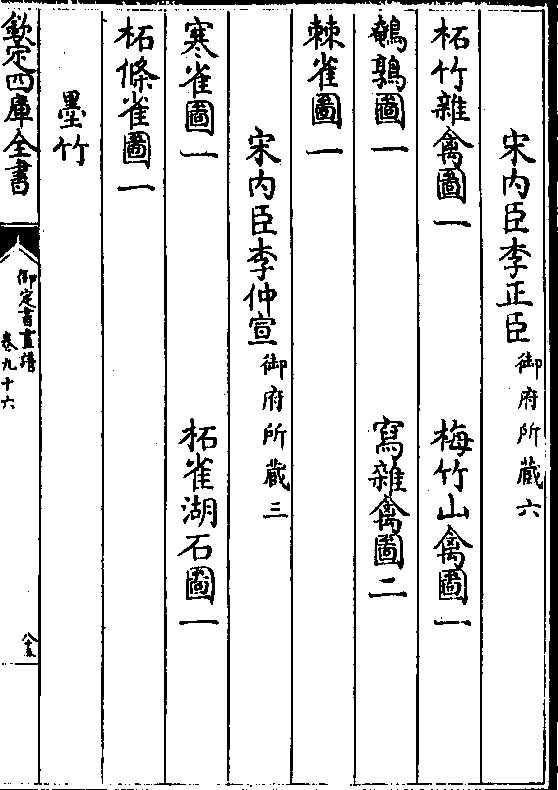 宋內臣李正臣御府所藏六
柘竹雜禽圖一　梅竹山禽圖一
鵪鶉圖一　寫雜禽圖二
棘雀圖一
宋內臣李仲宣御府所藏三
寒雀圖一　柘雀湖石圖一
柘條雀圖一
墨竹
欽定四庫全書　御定書畫譜　卷九十六